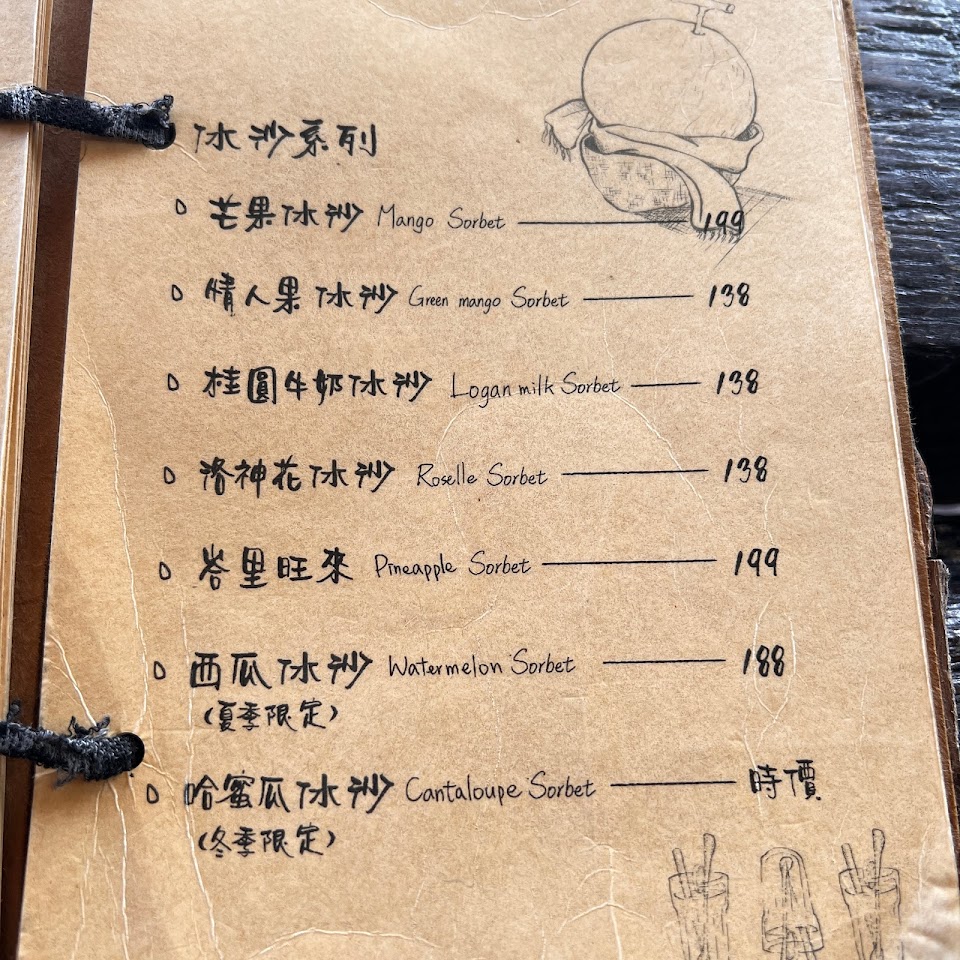 冰沙系列
芒果冰沙 Mango Sorbet 199
情人果冰沙 Green mango Sorbet 138
桂圓牛奶冰沙 Logan milk Sorbet 138
洛神花冰沙 Roselle Sorbet 138
峇里旺來 Pineapple Sorbet 199
西瓜冰沙 Watermelon Sorbet 188
(夏季限定)
哈蜜瓜冰沙 Cantaloupe Sorbet 時價
(冬季限定)